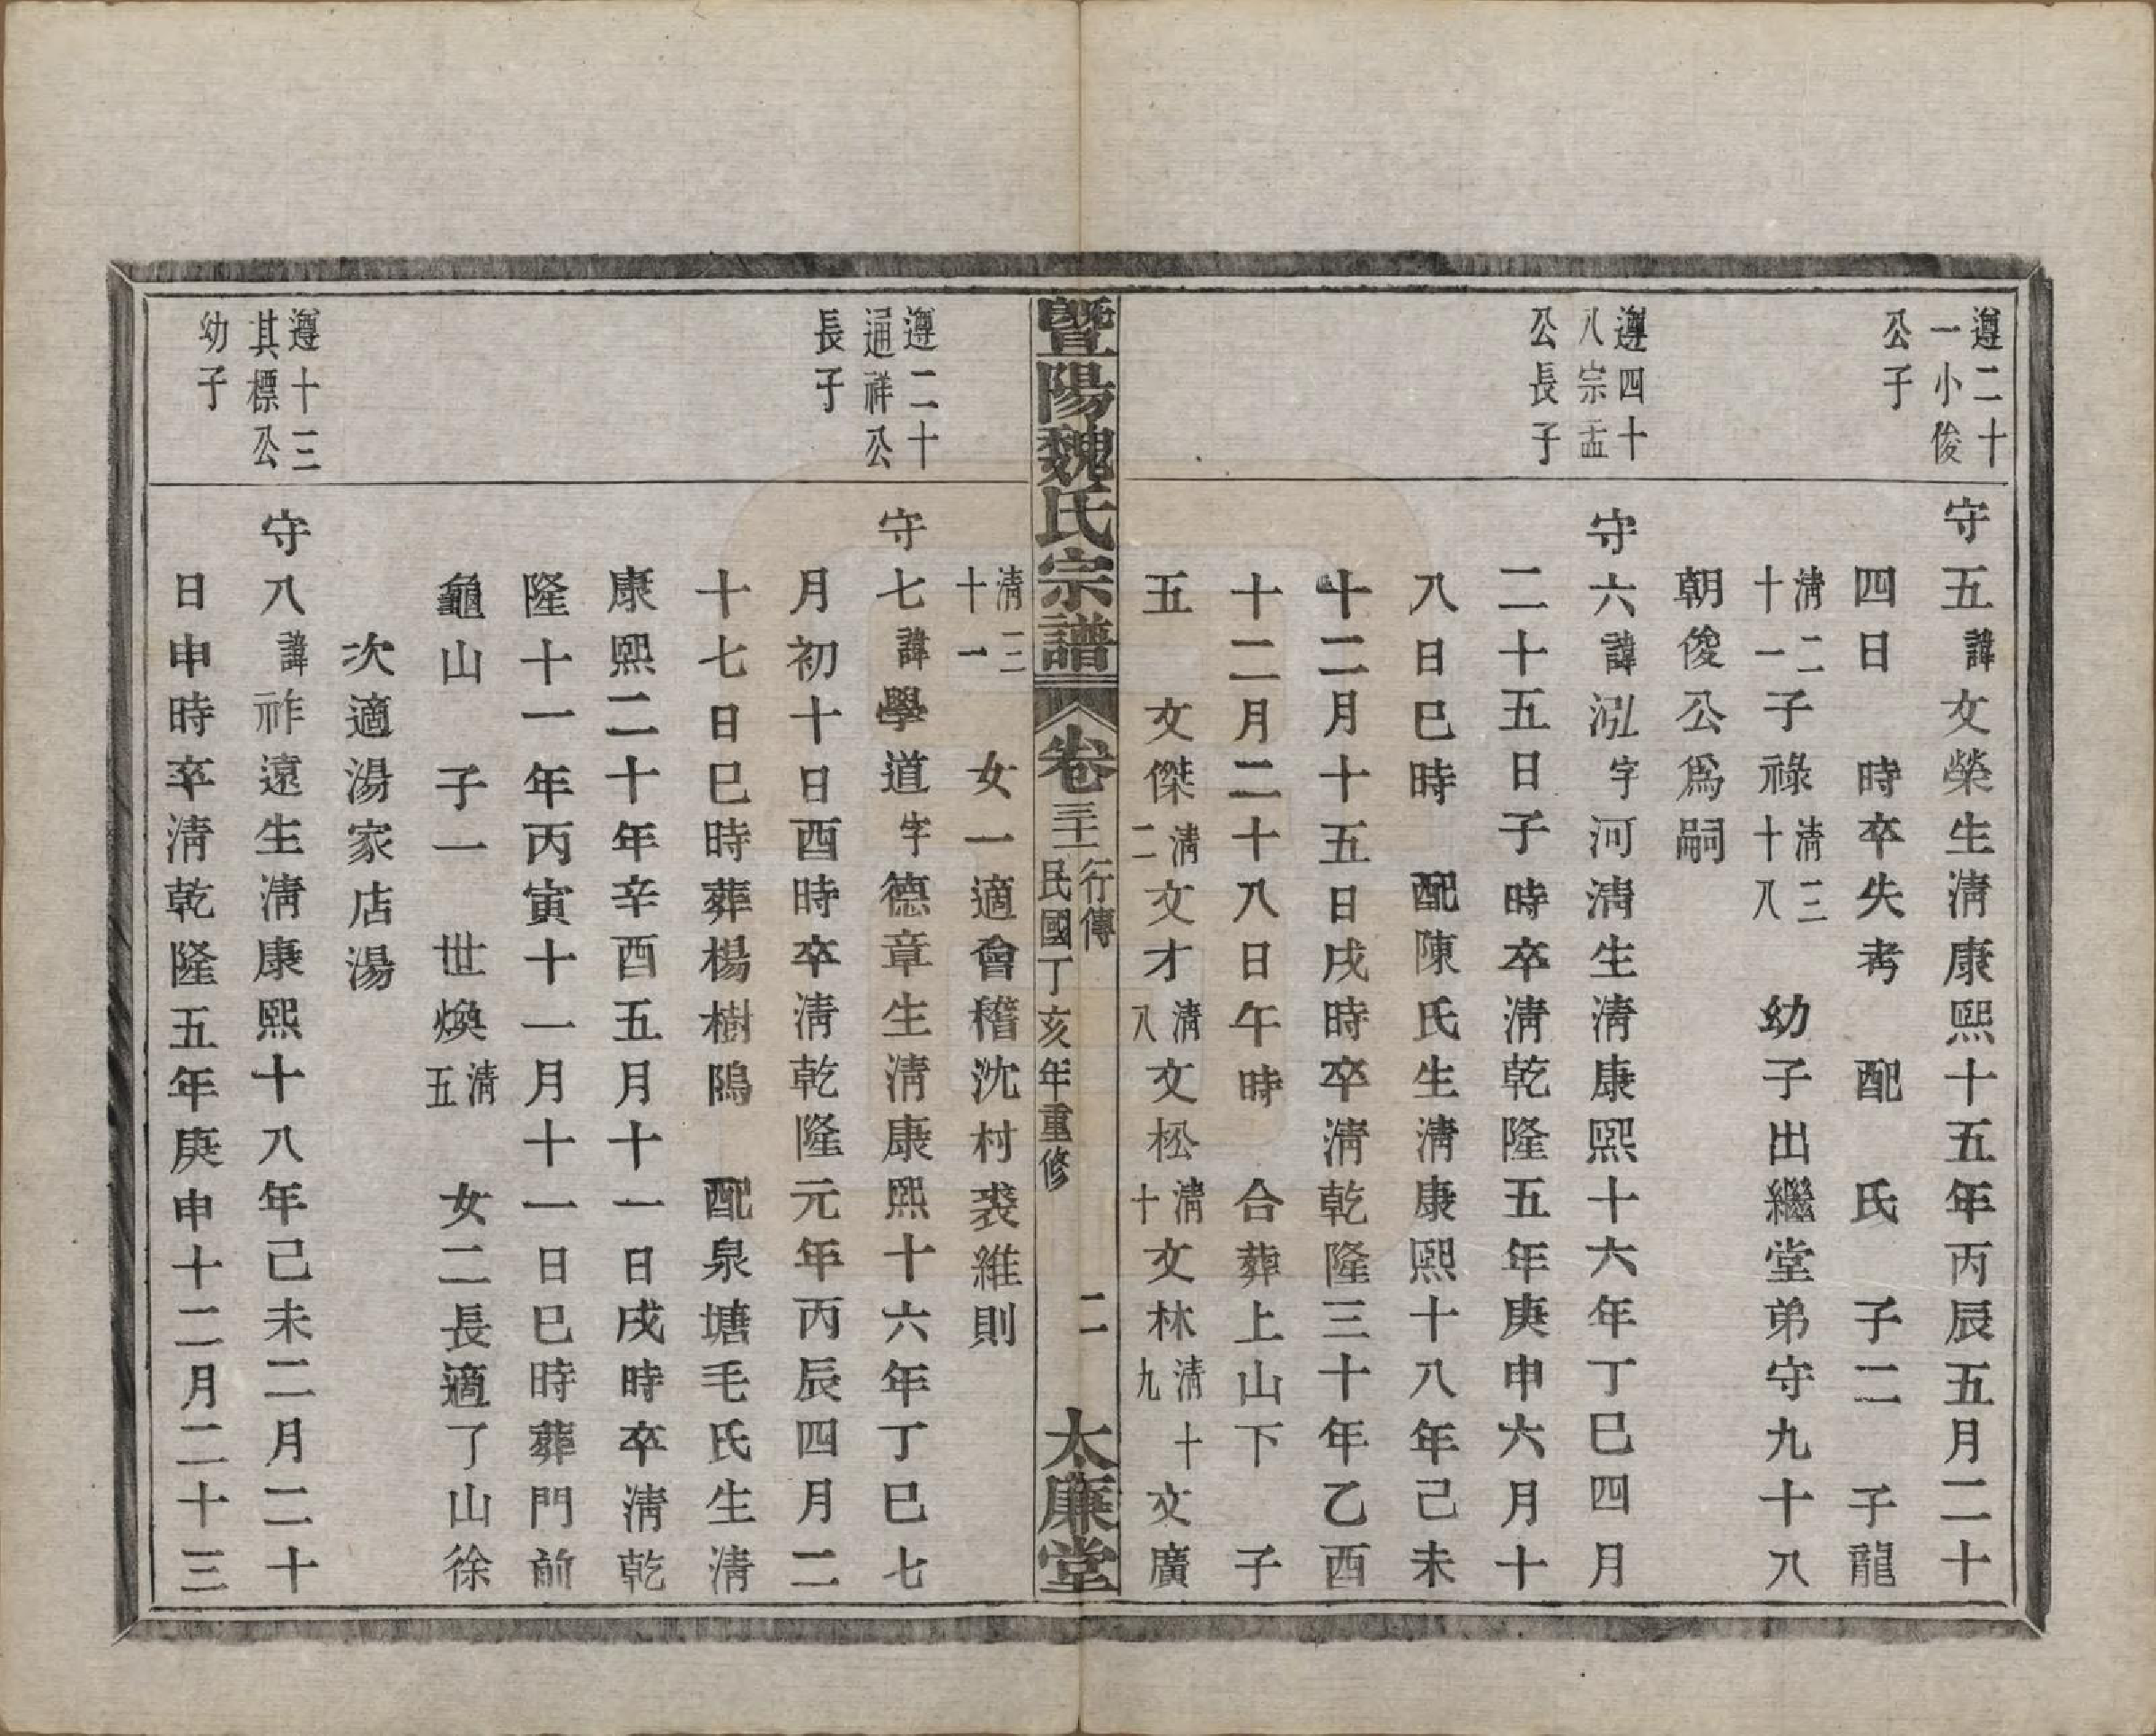 遵二十
一小俊
公子
守五諱文榮生淸康熙十五年丙辰五月二十
四日 時卒失考 配 氏 子二 子龍
淸二十一子祿淸三十八 幼子出繼堂弟守九十八
朝俊公爲嗣
遵四十
八宗盂
公長子
守六諱泓字河淸生淸康熙十六年丁巳四月
二十五日子時卒淸乾隆五年庚申六月十
八日巳時 配陳氏生淸康熙十八年己未
十二月十五日戌時卒淸乾隆三十年乙酉
十二月二十八日午時 合葬上山下 子
五 文傑淸二文才淸八文松淸十文林淸十九文廣
暨陽魏氏宗譜 卷三十二 行傳 民國丁亥年重修 二 太廉堂
淸三十一 女一適會稽沈村裘維則
遵二十
通祥公
長子
守七諱學道字德章生淸康熙十六年丁巳七
月初十日酉時卒淸乾隆元年丙辰四月二
十七日巳時葬楊樹隖 配泉塘毛氏生淸
康熙二十年辛酉五月十一日戌時卒淸乾
隆十一年丙寅十一月十一日巳時葬門前
龜山 子一 世煥淸五 女二長適了山徐
次適湯家店湯
遵十三
其標公
幼子
守八諱祚遠生淸康熙十八年己未二月二十
日申時卒淸乾隆五年庚申十二月二十三